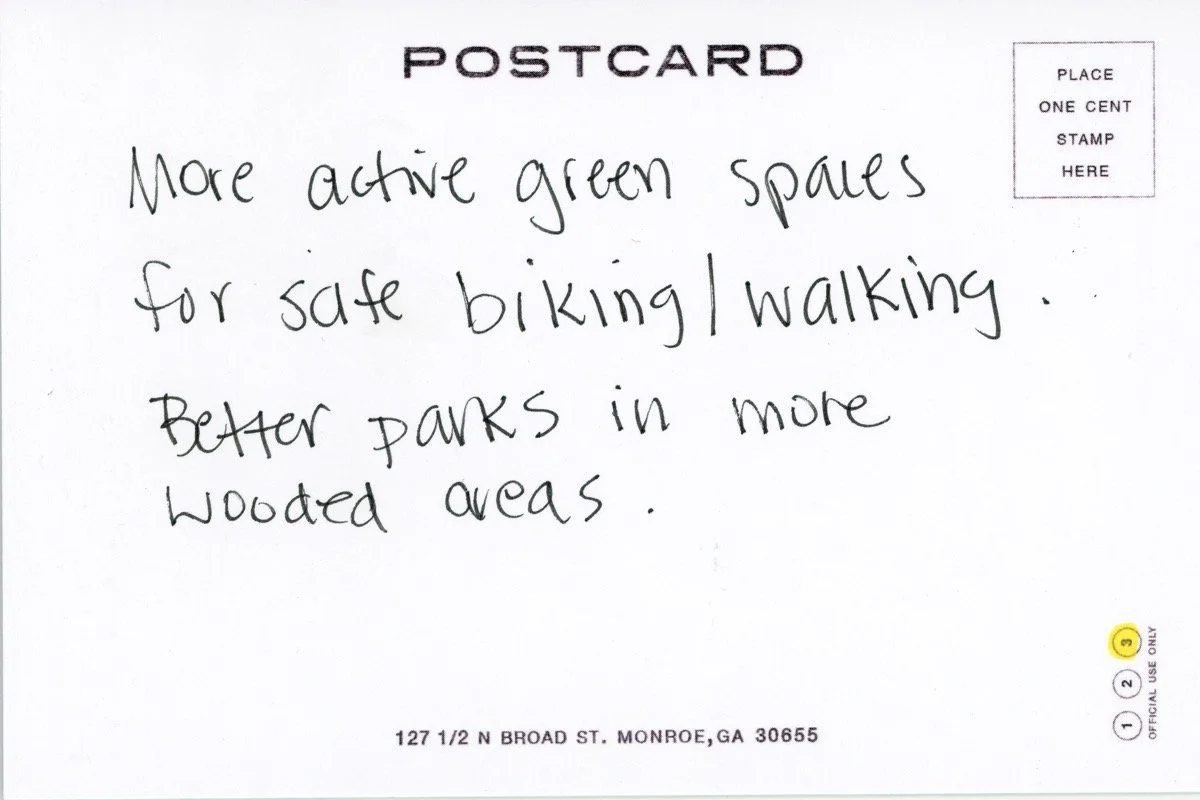 POSTCARD
PLACE
ONE CENT
STAMP
HERE
More active green spaces
for safe biking/walking.
Better parks in more
wooded areas.
127 1/2 N BROAD ST. MONROE,GA 30655
1 2 3
OFFICIAL USE ONLY